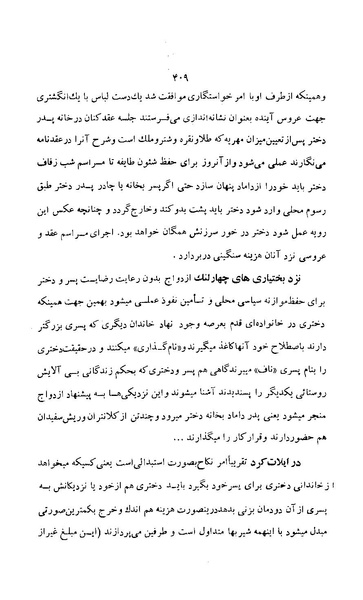 ۴۰۹
وهمینکه ازطرف اوبا امر خواستگاری موافقت شد یك‌دست لباس با یك‌انگشتری
جهت عروس آینده بعنوان نشانه‌اندازی می‌فرستند جلسه عقدکنان درخانه پدر
دختر پس‌ازتعیین‌میزان مهریه‌که طلاونقره وشتروملك است وشرح آنرا درعقدنامه
می‌نگارند عملی می‌شود وازآنروز برای حفظ شئون طایفه تا مراسم شب زفاف
دختر باید خودرا ازداماد پنهان سازد حتی اگرپسر بخانه یا چادر پدر دختر طبق
رسوم محلی وارد شود دختر باید پشت بدوکند وخارج‌گردد و چنانچه عکس این
رویه عمل شود دختر در خور سرزنش همگان خواهد بود. اجرای مراسم عقد و
عروسی نزد آنان هزینه سنگینی دربردارد.
نزد بختیاری های چهارلنك ازدواج بدون رعایت رضایست پسر و دختر
برای حفظ‌موازنه سیاسی محلی و تأمین نفوذ عملی میشود بهمین جهت همینکه
دختری در خانواده‌ای قدم بعرصه وجود نهاد خاندان دیگری که پسری بزرگتر
دارند باصطلاح خود آنهاکاغذ میگیرند و«نام‌گذاری» میکنند و درحقیقت‌دختری
را بنام پسری «ناف» میبرندگاهی هم پسر ودختری که‌بحکم زندگانی بی آلایش
روستائی یکدیگر را پسندیدند آشنا میشوند و این نزدیکی‌ها بـه پیشنهاد ازدواج
منجر میشود یعنی پدر داماد بخانه دختر میرود وچندتن ازکلانتران وریش‌سفیدان
هم حضوردارند وقرارکار را میگذارند ...
در ایلات‌کرد تقریباًامر نکاح‌بصورت استبدالی‌است یعنی کسیکه میخواهد
ازخاندانی دختری برای پسرخود بگیرد بایـد دختری هم ازخود یا نزدیکانش به
پسری از آن دودمان بزنی بدهددرینصورت هزینه هم اندك وخرج بکمترین‌صورتی
مبدل میشود با اینهمه شیربها متداول است و طرفین می‌پردازند (ایـن مبلغ غیراز